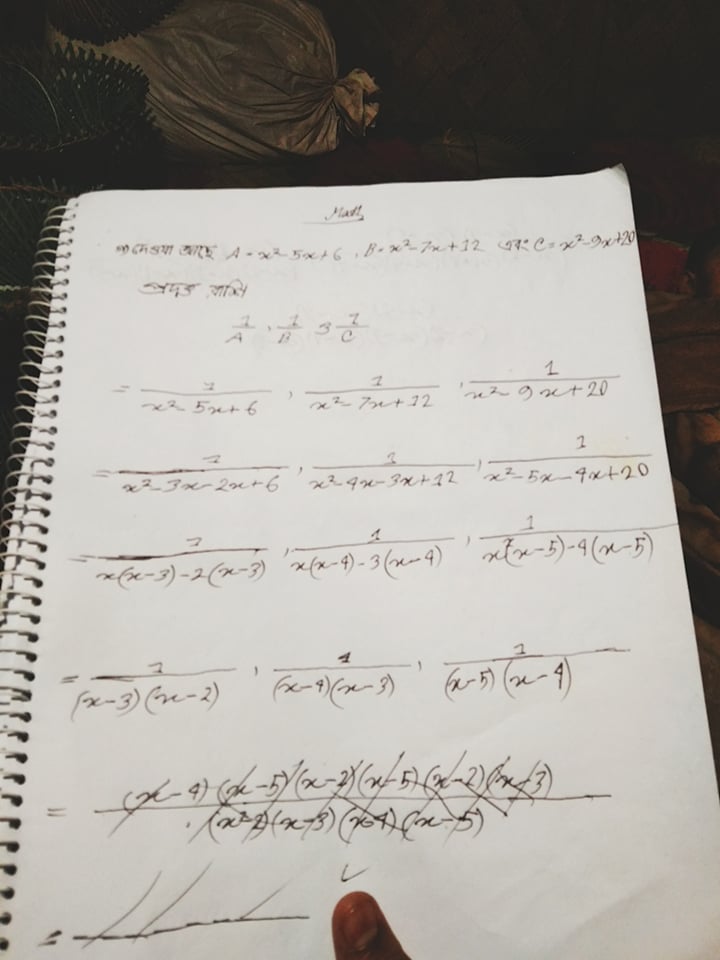 Math
দেওয়া আছে A = x²-5x+6, B = x²-7x+12 এবং C = x²-9x+20
প্রদত্ত রাশি
1/A, 1/B ও 1/C
= 1/(x²-5x+6), 1/(x²-7x+12), 1/(x²-9x+20)
= 1/(x²-3x-2x+6), 1/(x²-4x-3x+12), 1/(x²-5x-4x+20)
= 1/(x(x-3)-2(x-3)), 1/(x(x-4)-3(x-4)), 1/(x(x-5)-4(x-5))
= 1/((x-3)(x-2)), 1/((x-4)(x-3)), 1/((x-5)(x-4))
= (x-4)(x-5)(x-2)(x-5)(x-2)(x-3)/((x-2)(x-3)(x-4)(x-5))
=